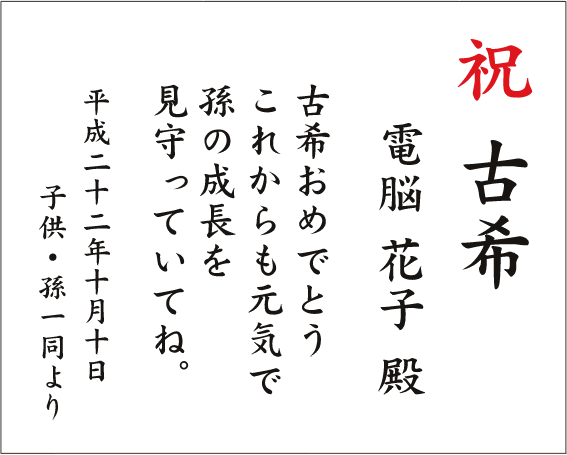 祝 古希
電脳 花子 殿
古希おめでとう
これからも元気で
孫の成長を
見守っていてね。
平成二十二年十月十日
子供・孫一同より